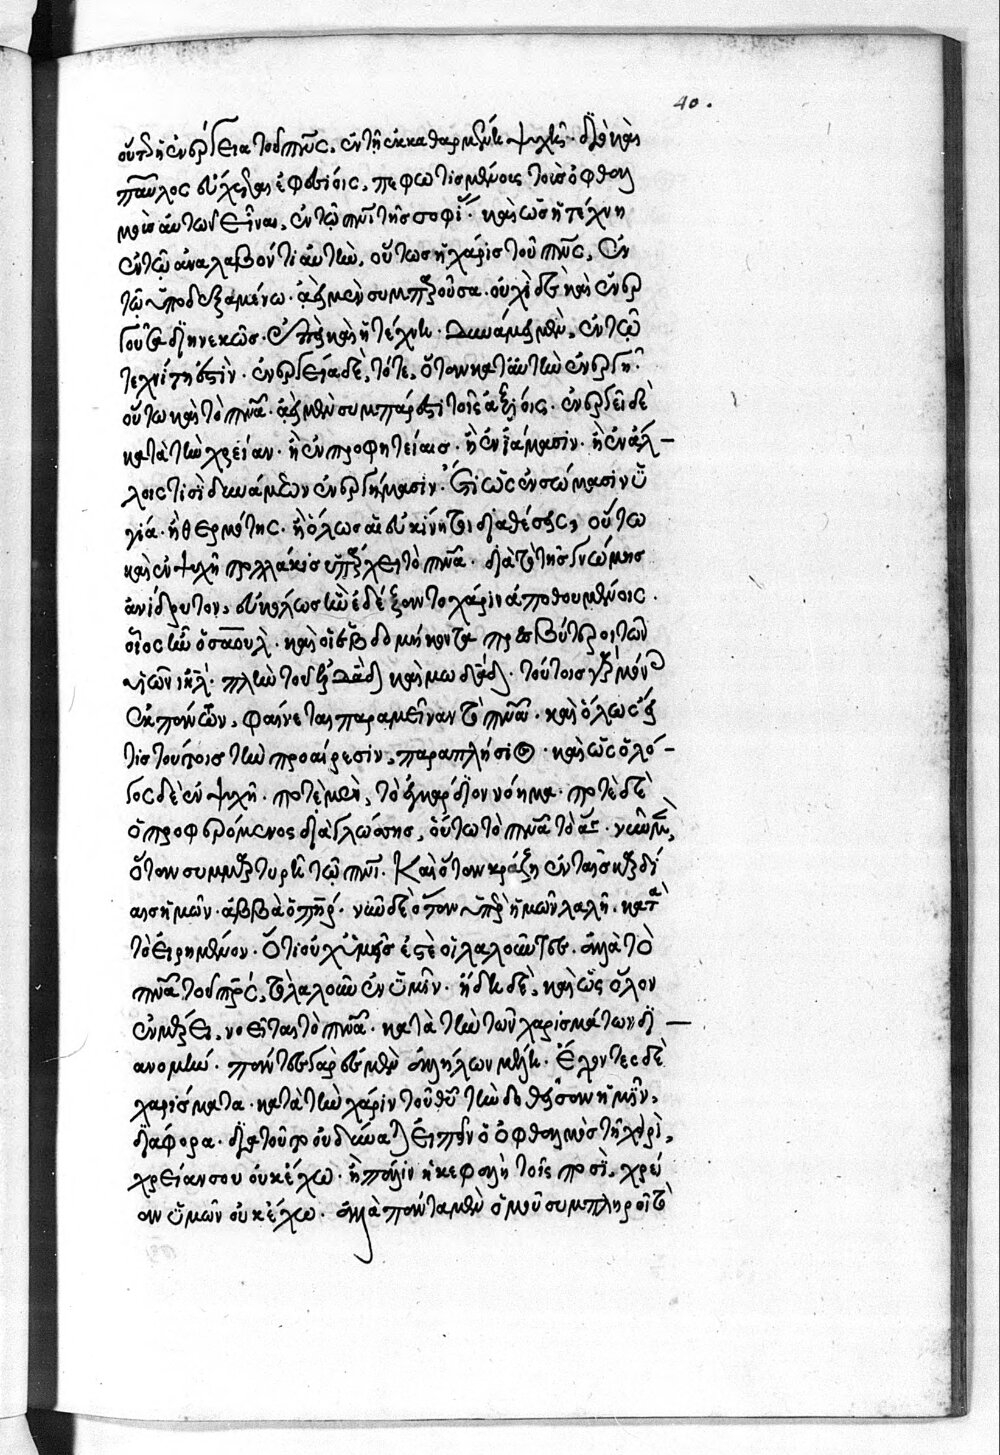 40.
οὕτω ἡ ἐνέργεια τοῦ πνς, ἐν τῇ κεκαθαρμένη ψυχῆ· διὸ καὶ
παῦλος εὔχεται ἐφεσίοις, πεφωτισμένους τοὺς ὀφθαλ
μοὺς αὐτῶν εἶναι, ἐν τῶ πνι τῆς σοφί· καὶ ὡς ἡ τέχνη
ἐν τῶ ἀναλαβόντι αὐτὴν, οὕτως ἡ χάρις τοῦ πνς, ἐν
τῶ ὑποδεξαμένω· ἀεὶ μὲν συμπαροῦσα· οὐχὶ δὲ καὶ ἐνερ
γοῦσα διηνεκῶς· ἐπεὶ καὶ ἡ τέχνη· δυνάμει μὲν, ἐν τῶ
τεχνίτη ἐστὶν· ἐνεργεία δὲ, τότε, ὅταν κατ' αὐτὴν ἐνεργῆ·
οὕτω καὶ τὸ πνα· ἀεὶ μὲν συμπάρεστι τοῖς ἀξίοις· ἐνεργεῖ δὲ
κατὰ τὴν χρείαν· ἢ ἐν προφητείαις· ἢ ἐν ἰάμασιν· ἢ ἐν ἄλ-
λοις τισὶ δυνάμεων ἐνεργήμασιν· Ἔτι ὡς ἐν σώμασιν ὑ
γία· ἢ θερμότης· ἢ ὅλως αἱ εὐκίνητοι διαθέσεις, οὕτω
καὶ ἐν ψυχῆ πολλάκις ὑπάρχει τὸ πνα· διὰ τὸ τῆς γνώμης
ἀνίδρυτον, εὐκόλως ἣν ἐδέξαντο χάριν ἀποθουμένοις·
οἷος ἦν ὁ σαουλ· καὶ οἱ ἑβδομήκοντα πρεσβύτεροι τῶν
υἱῶν ιηλ· πλὴν τοῦ ἐλδὰδ καὶ μωδάδ· τούτοις γὰρ μόνοις
ἐκ πάντων, φαίνεται παραμεῖναν τὸ πνα· καὶ ὅλως εἴ
τις τούτοις τὴν προαίρεσιν, παραπλήσιος· καὶ ὡς ὁ λό-
γος δὲ ἐν ψυχῆ· ποτὲ μὲν, τὸ ἐγκάρδιον νόημα· ποτὲ δὲ
ὁ προφερόμενος διὰ γλώσσης, οὕτω τὸ πνα τὸ ἅγ· νῦν μ,
ὅταν συμμαρτυρῆ τῶ πνι· Καὶ ὅταν κράζη ἐν ταῖς καρδί
αις ἡμῶν· ἀββᾶ ὁ πηρ· νῦν δὲ ὅταν ὑπὲρ ἡμῶν λαλῆ· κατὰ
τὸ εἰρημένον· Ὅτι οὐχ ὑμεῖς ἐστὲ οἱ λαλοῦντες· ἀλλὰ τὸ
πνα τοῦ πρς, τὸ λαλοῦν ἐν ὑμῖν· ἤδη δὲ, καὶ ὡς ὅλον
ἐν μέρει, νοεῖται τὸ πνα· κατὰ τὴν τῶν χαρισμάτων δι-
ανομήν· πάντες γάρ ἐσμὲν ἀλλήλων μέλη· Ἔχοντες δὲ
χαρίσματα· κατὰ τὴν χάριν τοῦ θυ τὴν δοθεῖσαν ἡμῖν,
διάφορα· διὰ τοῦτο οὐ δύναται εἰπεῖν ὁ ὀφθαλμὸς τῇ χειρὶ,
χρείαν σου οὐκ ἔχω· ἢ πάλιν ἡ κεφαλὴ τοῖς ποσὶ, χρεί
αν ὑμῶν οὐκ ἔχω· ἀλλὰ πάντα μὲν ὁμοῦ συμπληροῖ τὸ